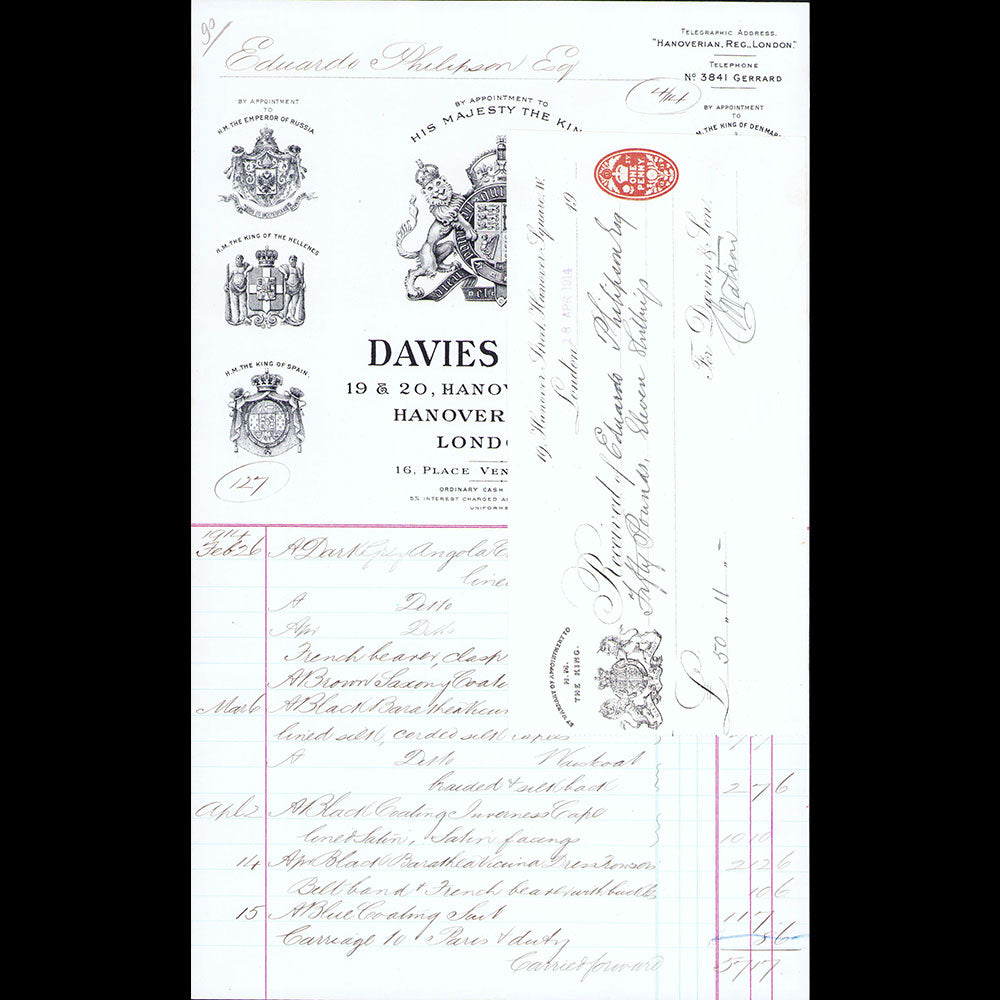 90/
Eduardo Philipson Esq
TELEGRAPHIC ADDRESS.
"HANOVERIAN, REG., LONDON."
TELEPHONE
No 3841 GERRARD
4/14
BY APPOINTMENT
TO
H.M. THE EMPEROR OF RUSSIA
H.M. THE KING OF THE HELLENES
H.M. THE KING OF SPAIN.
127
BY APPOINTMENT TO
HIS MAJESTY THE KIN
BY APPOINTMENT
TO
THE KING OF DENMAR
DAVIES
19 & 20, HANOV
HANOVER
LOND
16, PLACE VEN
ORDINARY CASH
5% INTEREST CHARGED
UNIFORM
1914
Feb 26 A Dark Grey Angola
line
A Ditto
Apr Ditto
French bearer, clasp
A Brown Saxony Coat
Mar 6 A Black Barathea
lined silk, corded silk
A Ditto Waistcoat
braided & silk back 2 7 6
Apl 2 A Black Coating Inverness Cape
lined Satin, Satin facings 10 10
14 Apr Black Barathea Vicuna Dress Trousers 2 12 6
Belt band & French bearer with buckles 10 6
15 A Blue Coating Suit 11 7
Carriage to Paris & duty
Carried forward 57 17
19, Hanover Street, Hanover Square, W.
London 28 APR 1914 19
ONE PENNY
Received of Eduardo Philipson Esq
Fifty Pounds, Eleven Shillings
For Davies & Son.
Watson
BY WARRANT OF APPOINTMENT TO
H.M.
THE KING.
£ 50 " 11 " -